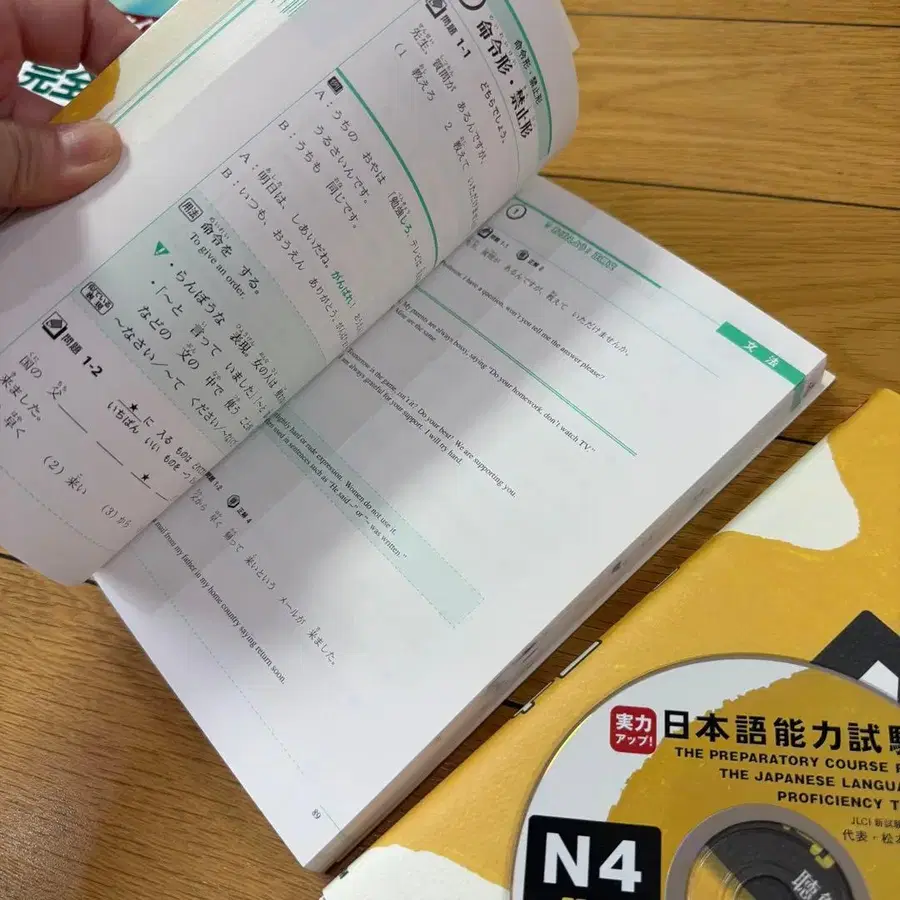 命令形・禁止形
命令形・禁止形
問題 1-1
どちらでしょう。
先生、質問が あるんですが、
(1 教えろ 2 教えて いただけませ
A:うちの おやは 「勉強しろ、テレビ
うるさいんです。
B:うちも 同じです。
A:明日は、しあいだね。がんばれ!
B:いつも、おうえん ありがとう。がんば
用法
命令を する。
To give an order.
・らんぼうな 表現。女の人は
・「~と 言って いました」「~と
などの 文の 中で 使う
似ている表現
~なさい/~て ください/~な
問題 1-2
★ に 入る ものは
いちばん いい ものを 一つ
国の 父
★
来ました。
早く
(2) 来い
(3) から
1
文法
命令形・禁止形
問題 1-1
正解 2
質問が あるんですが、教えて いただけませんか。
I have a question, won't you tell me the answer please?
My parents are always bossy, saying "Do your homework, don't watch TV."
Mine are the same.
Tomorrow is the game, isn't it? Do your best! We are supporting you.
always grateful for your support. I will try hard.
hard or rude expression. Women do not use it.
used in sentences such as "He said ~" or "~ was written."
問題 1-2
正解 4
父から 早く 帰って 来いという メールが 来ました。
mail from my father in my home country saying return soon.
89
完全
実力
アップ!
日本語能力試験
THE PREPARATORY COURSE
THE JAPANESE LANGUA
PROFICIENCY T
JLCI 新試験
代表・松本
N4
聴